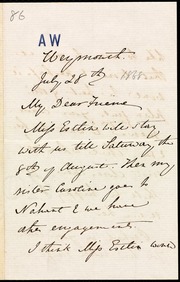 86
AW
Weymouth
July 28th
1868
My Dear Friend
Miss Estlin will stay
with us till Saturday the
8th of August. Then my
sister Caroline goes to
Nahant & we have
other engagements.
I think Miss Estlin